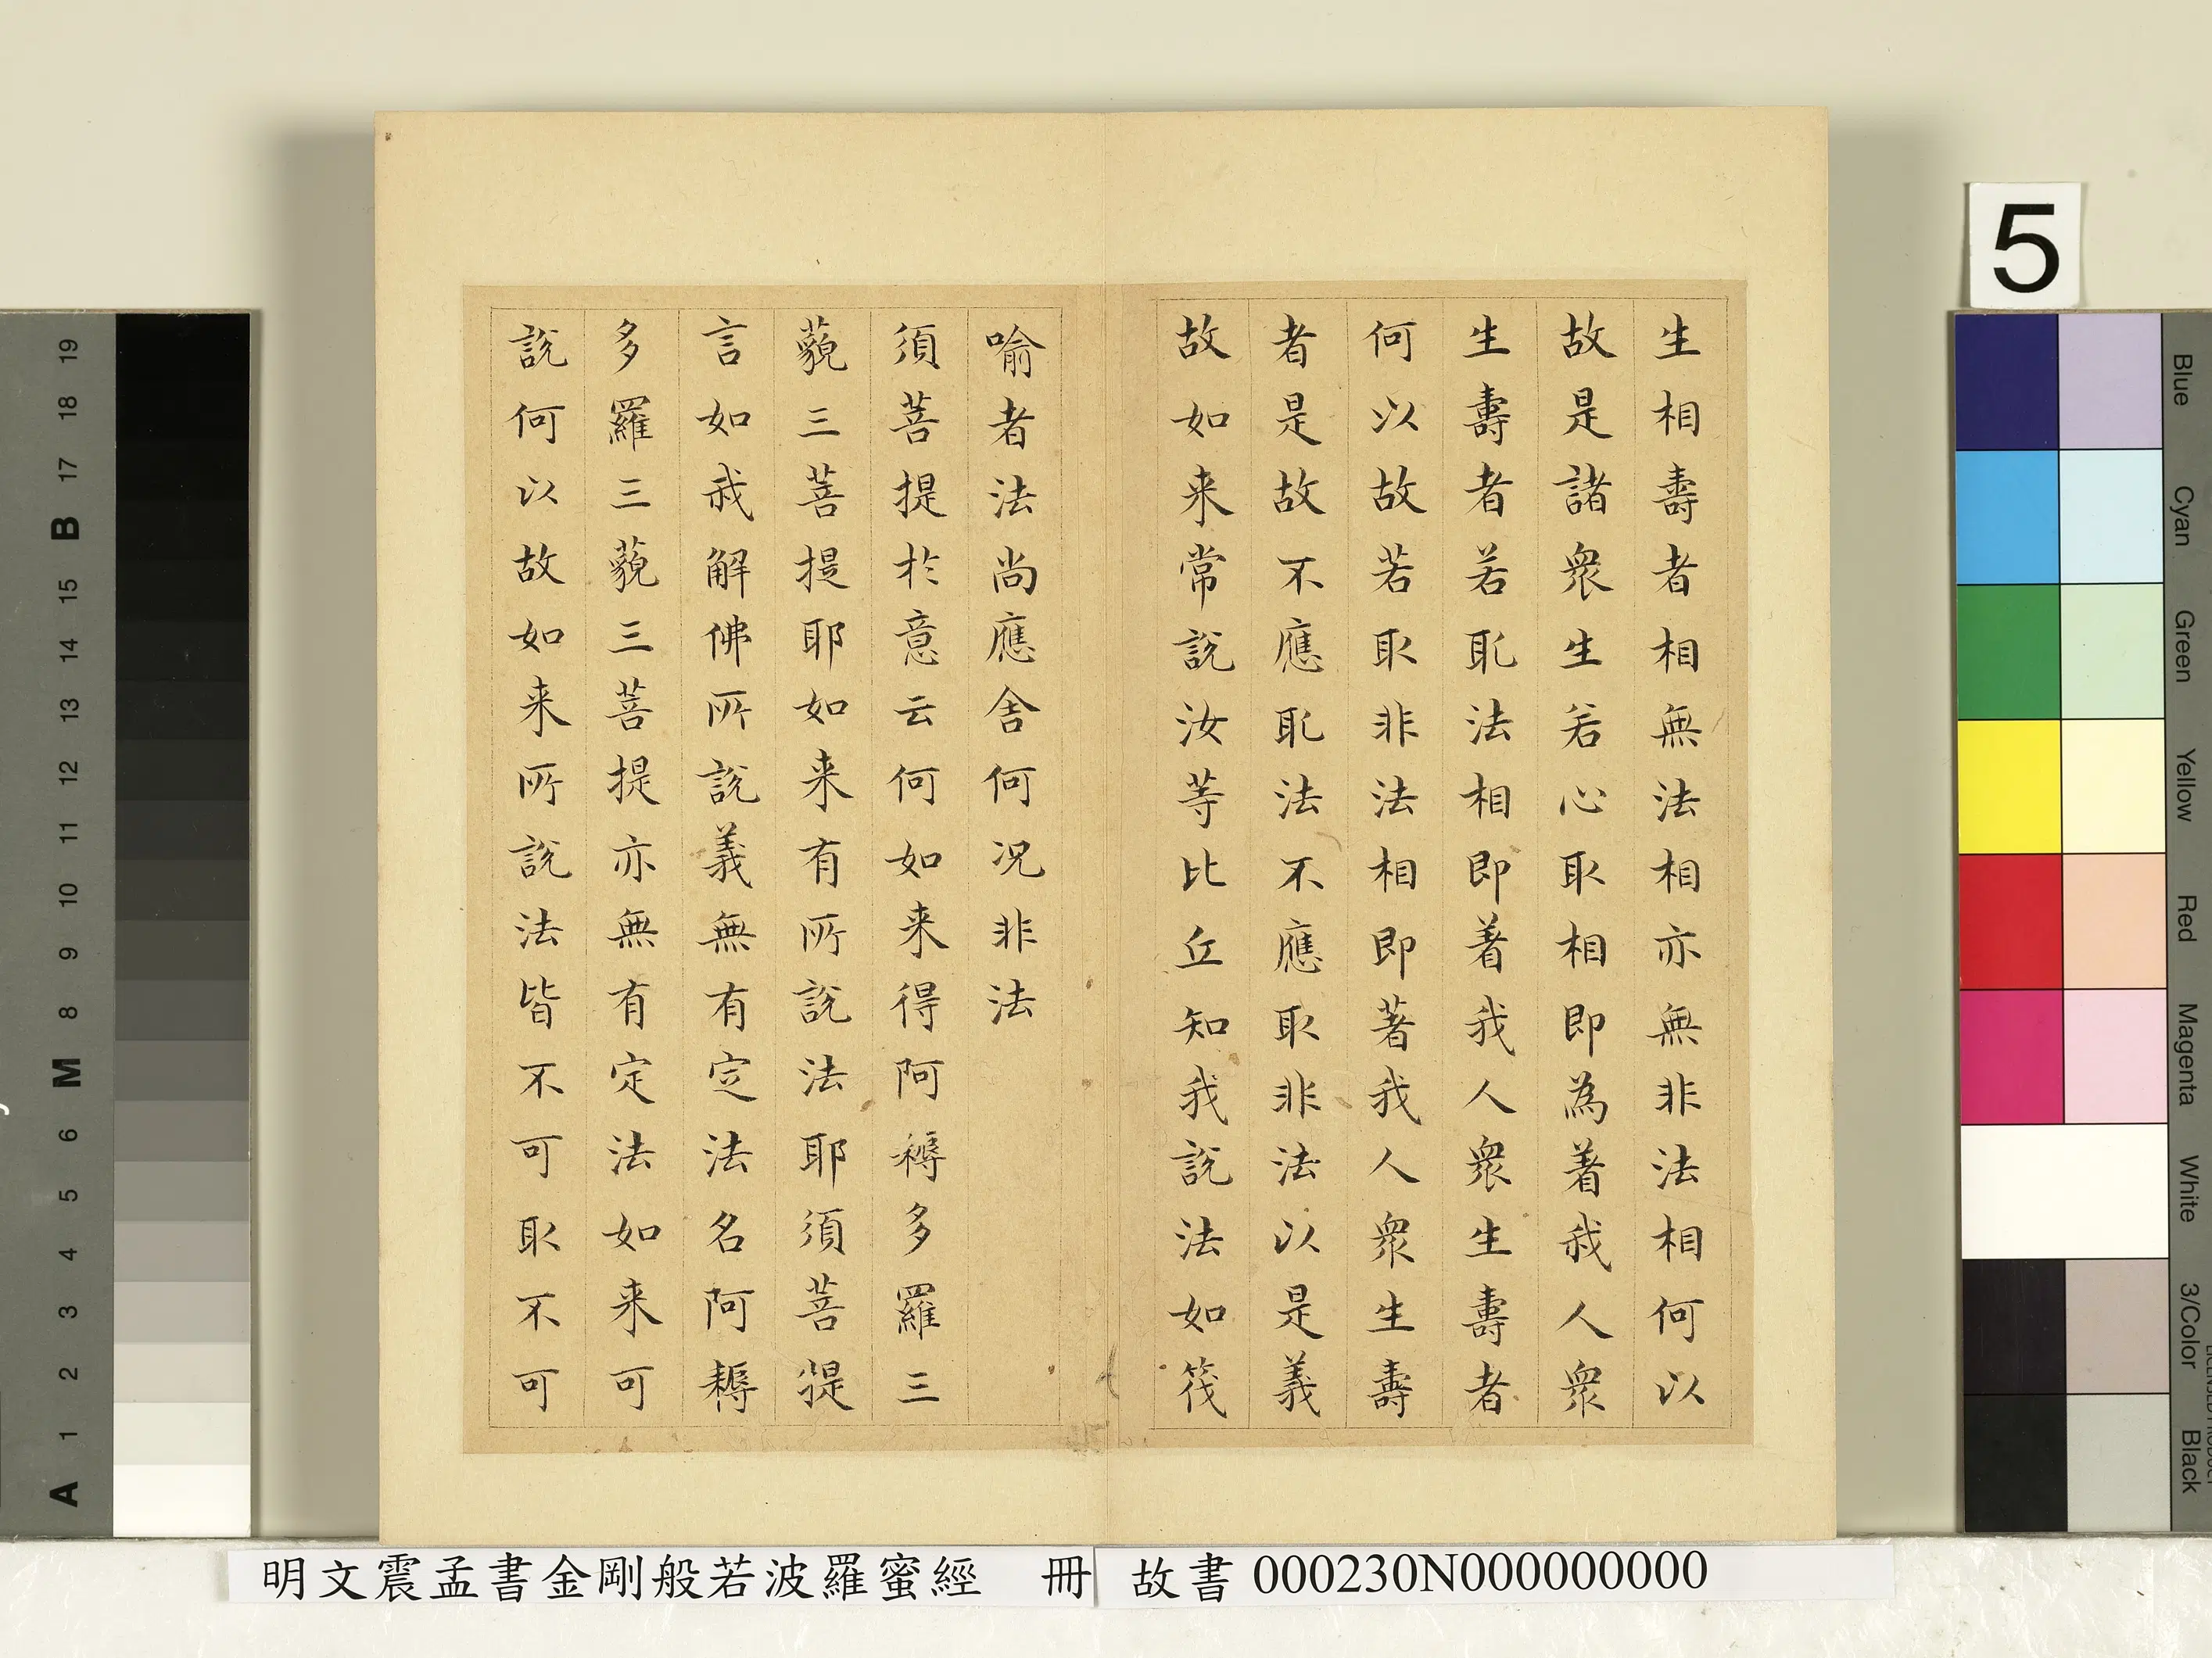 生相壽者相無法相亦無非法相何以
故是諸衆生若心取相即為著我人衆
生壽者若取法相即著我人衆生壽者
何以故若取非法相即著我人衆生壽
者是故不應取法不應取非法以是義
故如来常說汝等比丘知我說法如筏
喻者法尚應舍何况非法
須菩提於意云何如来得阿耨多羅三
藐三菩提耶如来有所說法耶須菩提
言如我解佛所說義無有定法名阿耨
多羅三藐三菩提亦無有定法如来可
說何以故如来所說法皆不可取不可
5
Blue
Cyan
Green
Yellow
Red
Magenta
White
3/Color
Black
19
18
17
B
15
14
13
12
11
10
9
8
M
6
5
4
3
2
1
A
明文震孟書金剛般若波羅蜜經 冊
故書 000230N000000000